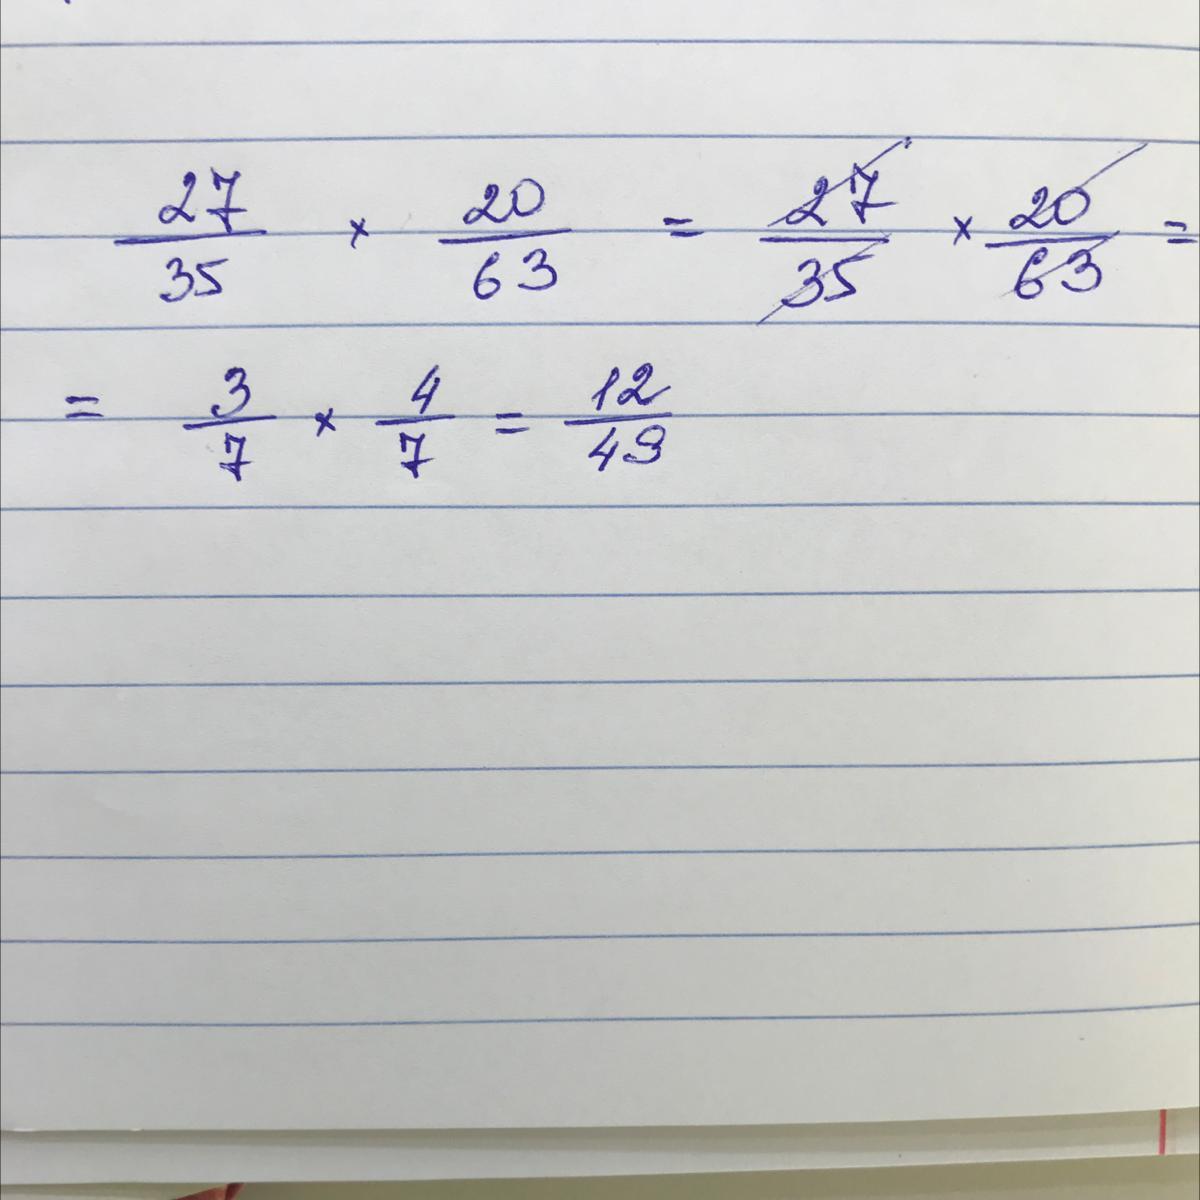 27/35 × 20/63 = 27/35 × 20/63 =
= 3/7 × 4/7 = 12/49